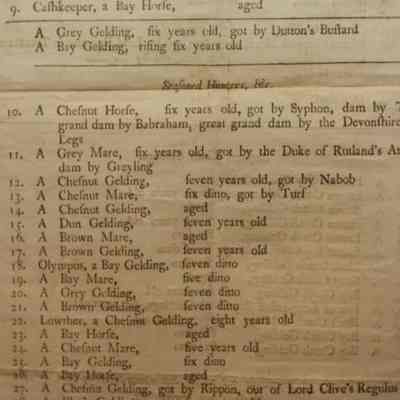 9. Cashkeeper, a Bay Horse, aged
A Grey Gelding, six years old, got by Dutton's Bustard
A Bay Gelding, rising six years old
Seasoned Hunters, &c.
10. A Chesnut Horse, six years old, got by Syphon, dam by
grand dam by Babraham, great grand dam by the Devonshire
Legs
11. A Grey Mare, six years old, got by the Duke of Rutland's
dam by Greyling
12. A Chesnut Gelding, seven years old, got by Nabob
13. A Chesnut Mare, six ditto, got by Turf
14. A Chesnut Gelding, aged
15. A Dun Gelding, seven years old
16. A Brown Mare, aged
17. A Brown Gelding, seven years old
18. Olympus, a Bay Gelding, seven ditto
19. A Bay Mare, five ditto
20. A Grey Gelding, seven ditto
21. A Brown Gelding, seven ditto
22. Lowther, a Chesnut Gelding, eight years old
23. A Bay Horse, aged
24. A Chesnut Mare, five years old
25. A Bay Gelding, six ditto
26. A Bay Horse, aged
27. A Chesnut Gelding, got by Rippon, out of Lord Clive's Regulus